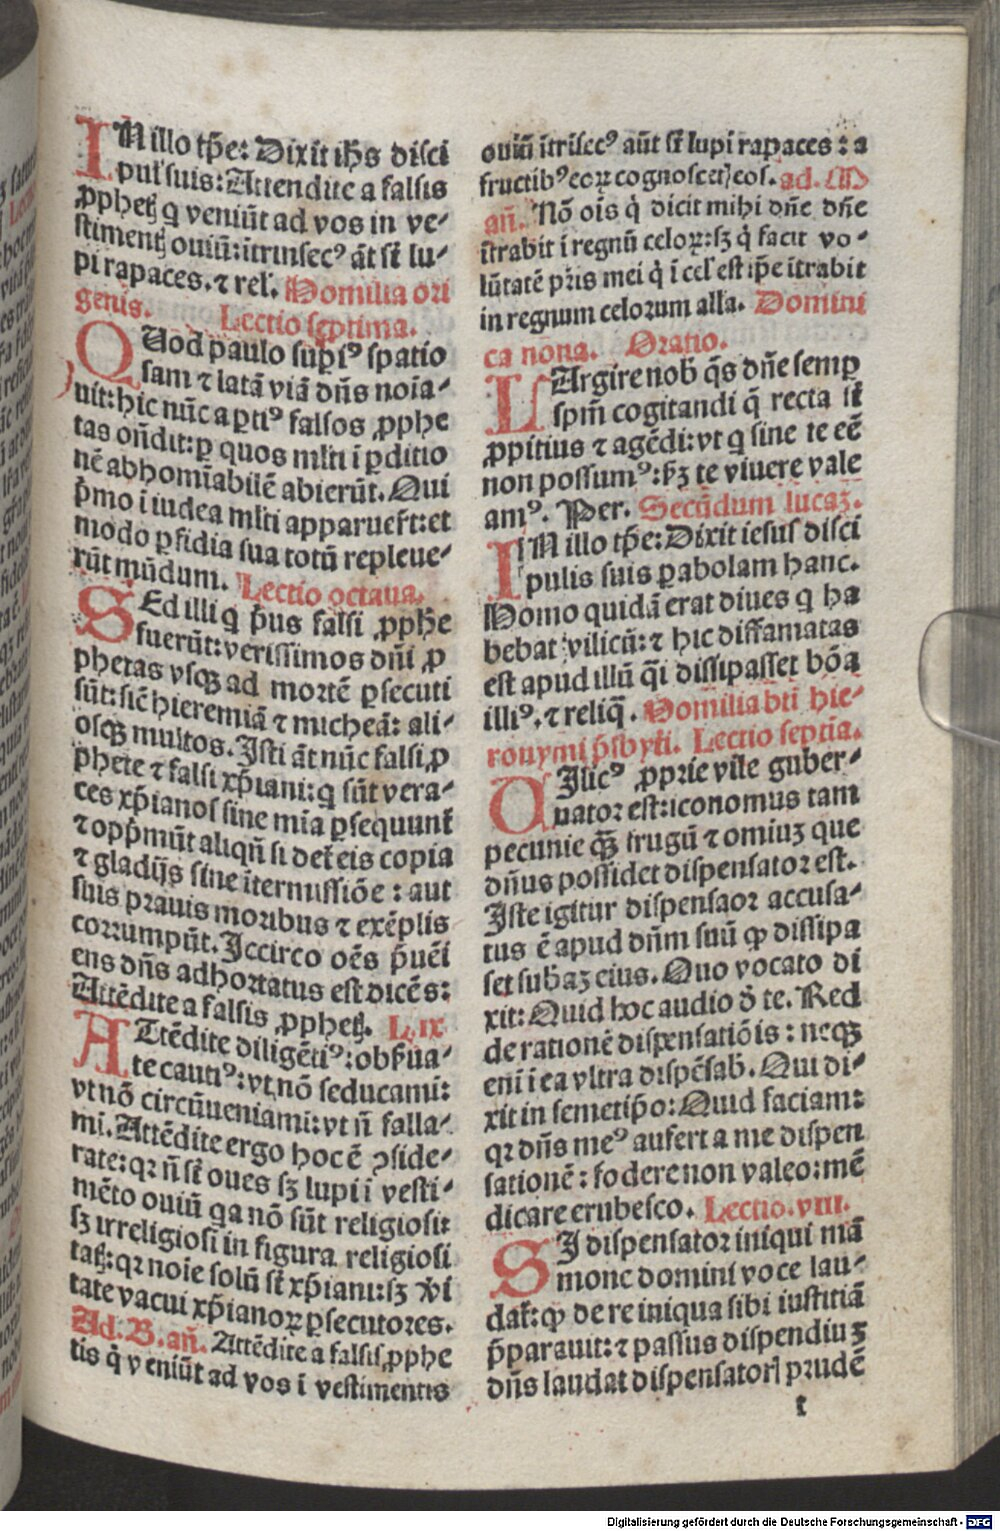 IN illo tp̄e: Dixit ihs̄ disci
pul' suis: Attendite a falsis
ꝓphetꝭ q̄ veniūt ad vos in ve-
stimentꝭ ouiū: ītrinsecꝰ āt st̄ lu-
pi rapaces. ⁊ rel'. Homilia ori
genis. Lectio septima.
QUod paulo suꝑiꝰ spatio
sam ⁊ latā viā dn̄s noīa-
uit: hic nūc aꝑtiꝰ falsos ꝓphe
tas on̄dit: ꝑ quos ml̄ti i ꝑditio
nē abhomīabilē abierūt. Qui
p̄mo i iudea ml̄ti apparuer̄t: et
modo ꝑfidia sua totū repleue-
rūt mūdum. Lectio octaua.
SEd illi q̄ p̄us falsi ꝓphe
fuerūt: verissimos dn̄i ꝓ
phetas vsqꝫ ad mortē ꝑsecuti
sūt: sic̄ hieremiā ⁊ micheā: ali-
osqꝫ multos. Isti āt nūc falsi ꝓ
phete ⁊ falsi xp̄iani: q̄ sūt vera-
ces xp̄ianos sine mia ꝑsequunt̄
⁊ opp̄mūt aliqū si det̄ eis copia
⁊ gladijs sine itermissiōe: aut
suis prauis moribus ⁊ exēplis
corrumpūt. Iccirco oēs p̄uēi
ens dn̄s adhortatus est dicēs:
Attēdite a falsis ꝓphetꝭ. L. ix
ATtēdite diligētiꝰ: obẜua-
te cautiꝰ: vt nō seducami:
vt nō circūueniami: vt n̄ falla-
mi. Attēdite ergo hoc ē ꝯside-
rate: qꝛ n̄ st̄ oues sꝫ lupi i vesti-
mēto ouiū qa nō sūt religiosi:
sꝫ irreligiosi in figura religiosi
tatꝭ: qꝛ noīe solū st̄ xp̄iani: sꝫ vi
tate vacui xp̄ianoꝝ ꝑsecutores.
Ad. B. an̄. Attēdite a falsis ꝓphe
tis q̄ veniūt ad vos i vestimentis
ouiū ītrisecꝰ aūt st̄ lupi rapaces: a
fructibꝰ eoꝝ cognoscetꝭ eos. ad. M
an̄. Nō oīs q̄ dicit mihi dn̄e dn̄e
ītrabit i regnū celoꝝ: sꝫ q̄ facit vo-
lūtatē pr̄is mei q̄ i cel' est ip̄e ītrabit
in regnum celorum alla. Domini
ca nona. Oratio.
LArgire nob̄ q̄s dn̄e semꝑ
spm̄ cogitandi q̄ recta st̄
ꝓpitius ⁊ agēdi: vt q̄ sine te eē
non possumꝰ: ẜꝫ te viuere vale
amꝰ. Per. Secūdum lucaꝫ.
IN illo tp̄e: Dixit iesus disci
pulis suis ꝑabolam hanc.
Homo quidā erat diues q̄ ha
bebat vilicū: ⁊ hic diffamatus
est apud illū q̄i dissipasset bōa
illiꝰ. ⁊ reliq̄. Homilia bti hie-
ronymi p̄sbyt̄i. Lectio septīa.
UIlicꝰ ꝓprie ville guber-
nator est: iconomus tam
pecunie qꝫ̄ frugū ⁊ omiuꝫ que
dn̄us possidet dispensator est.
Iste igitur dispensaor accusa-
tus ē apud dn̄m suū ꝙ dissipa
set subaꝫ eius. Quo vocato di
xit: Quid hoc audio d̄ te. Red
de rationē dispensatiōis: neqꝫ
eni i ea vltra dispēsab̄. Qui di-
xit in semetip̄o: Quid faciam:
qꝛ dn̄s meꝰ aufert a me dispen
sationē: fodere non valeo: mē
dicare erubesco. Lectio. viii.
SI dispensator iniqui mā
mone domini voce lau-
dat̄: ꝙ de re iniqua sibi iustitiā
p̄parauit: ⁊ passus dispendiuꝫ
dn̄s laudat dispensatorꝭ prudē
t
Digitalisierung gefördert durch die Deutsche Forschungsgemeinschaft - DFG